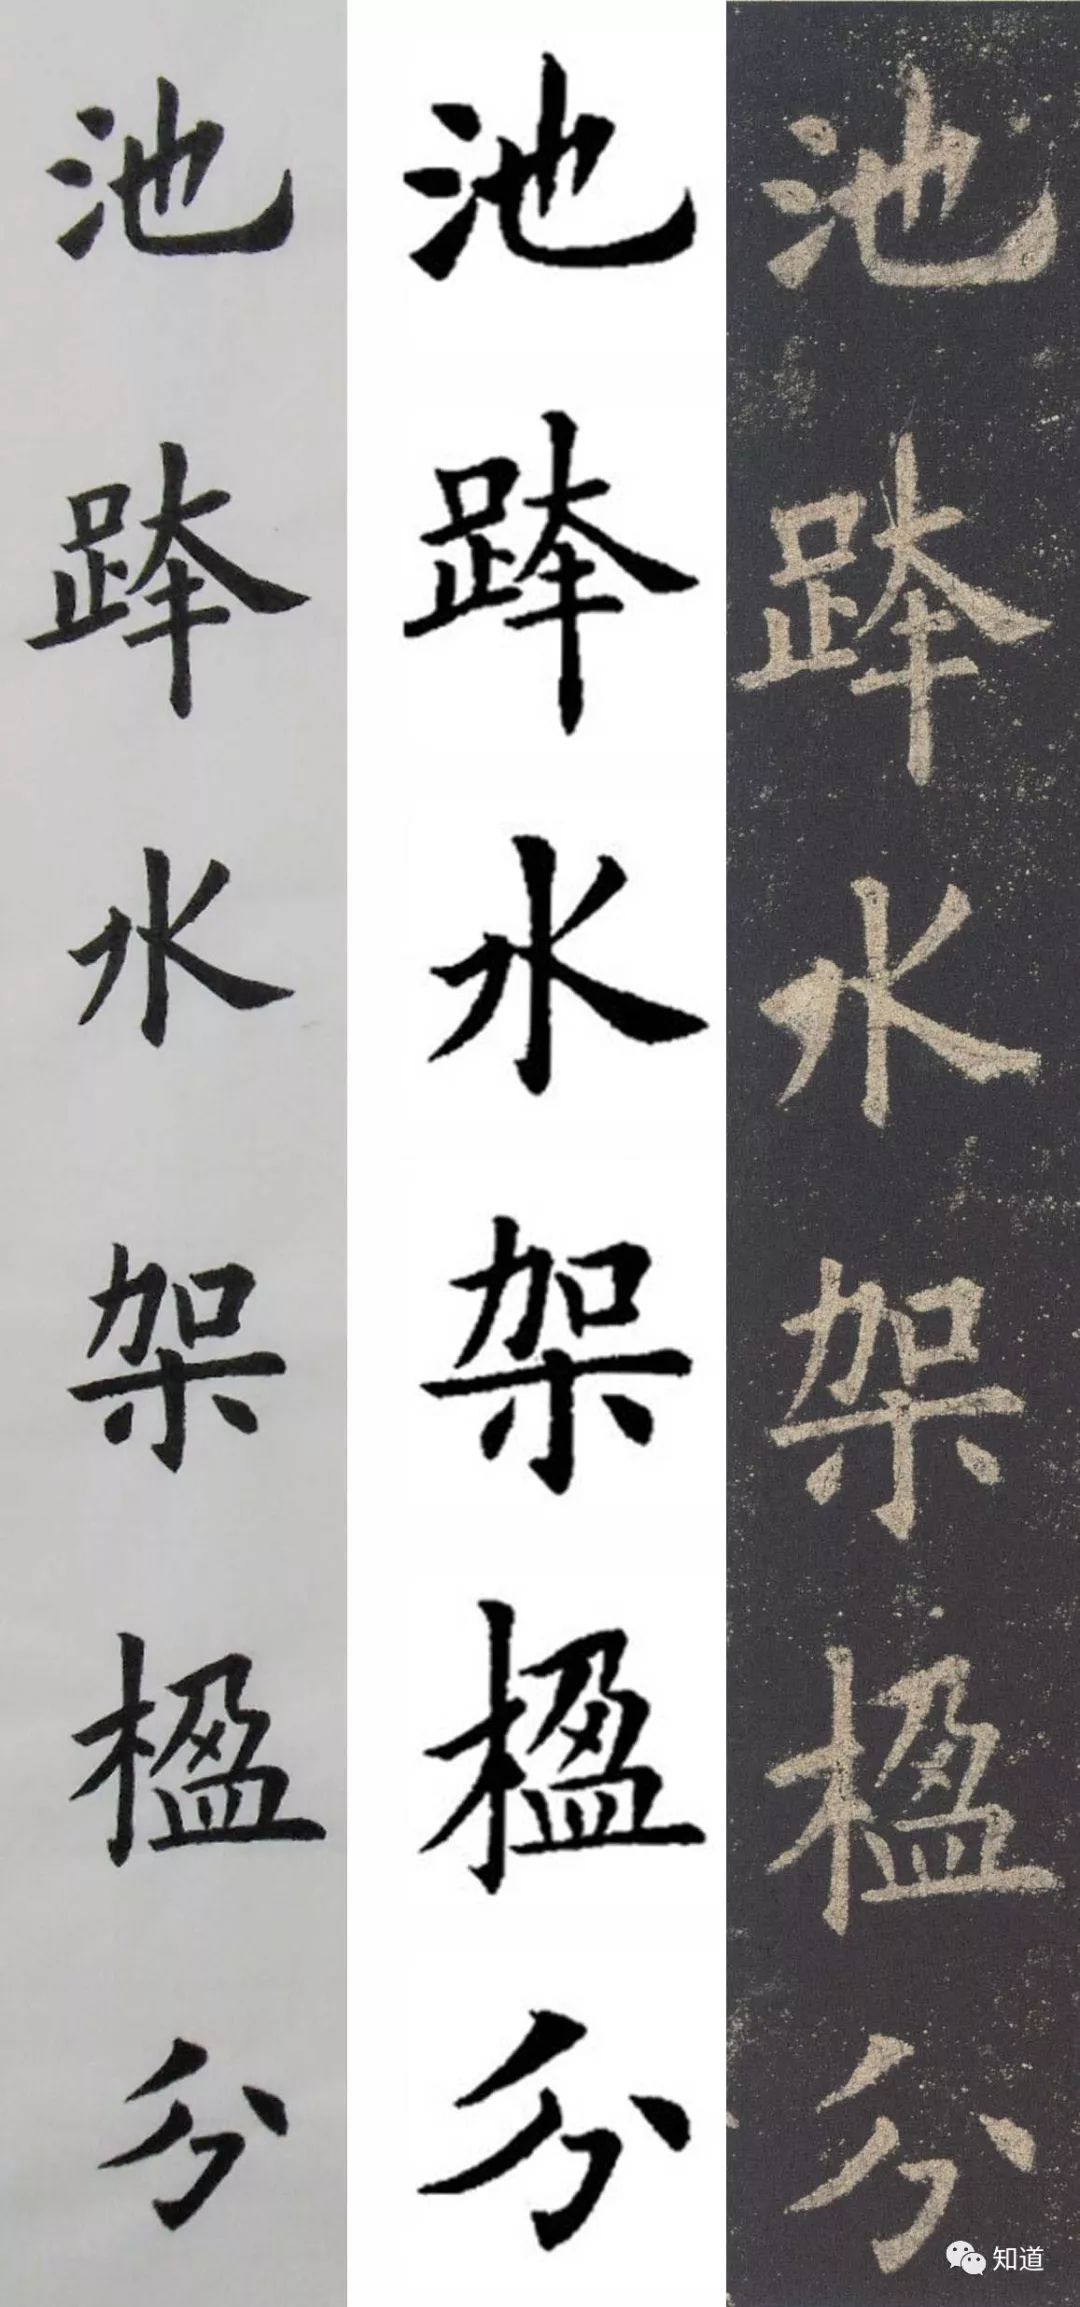 池跨水架楹分
池跨水架楹分
池跨水架楹分
知道